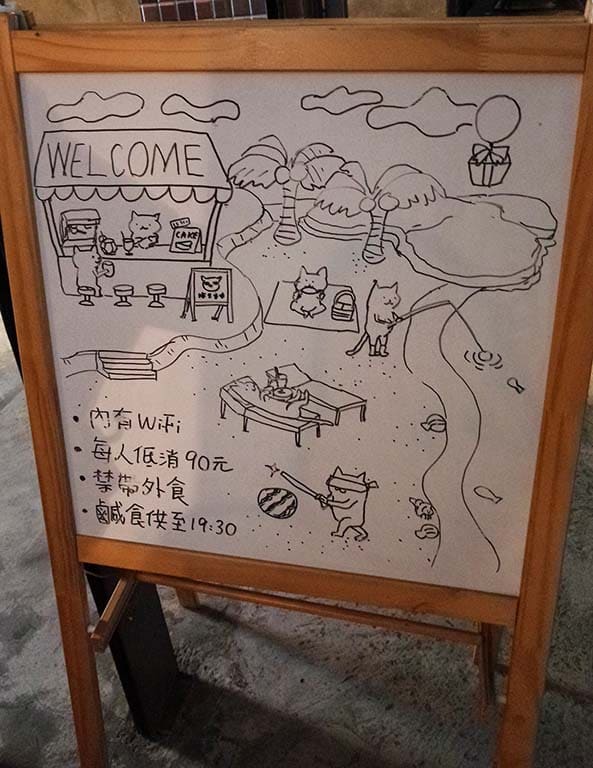 WELCOME
CAKE
• 內有WiFi
• 每人低消90元
• 禁帶外食
• 鹹食供至19:30